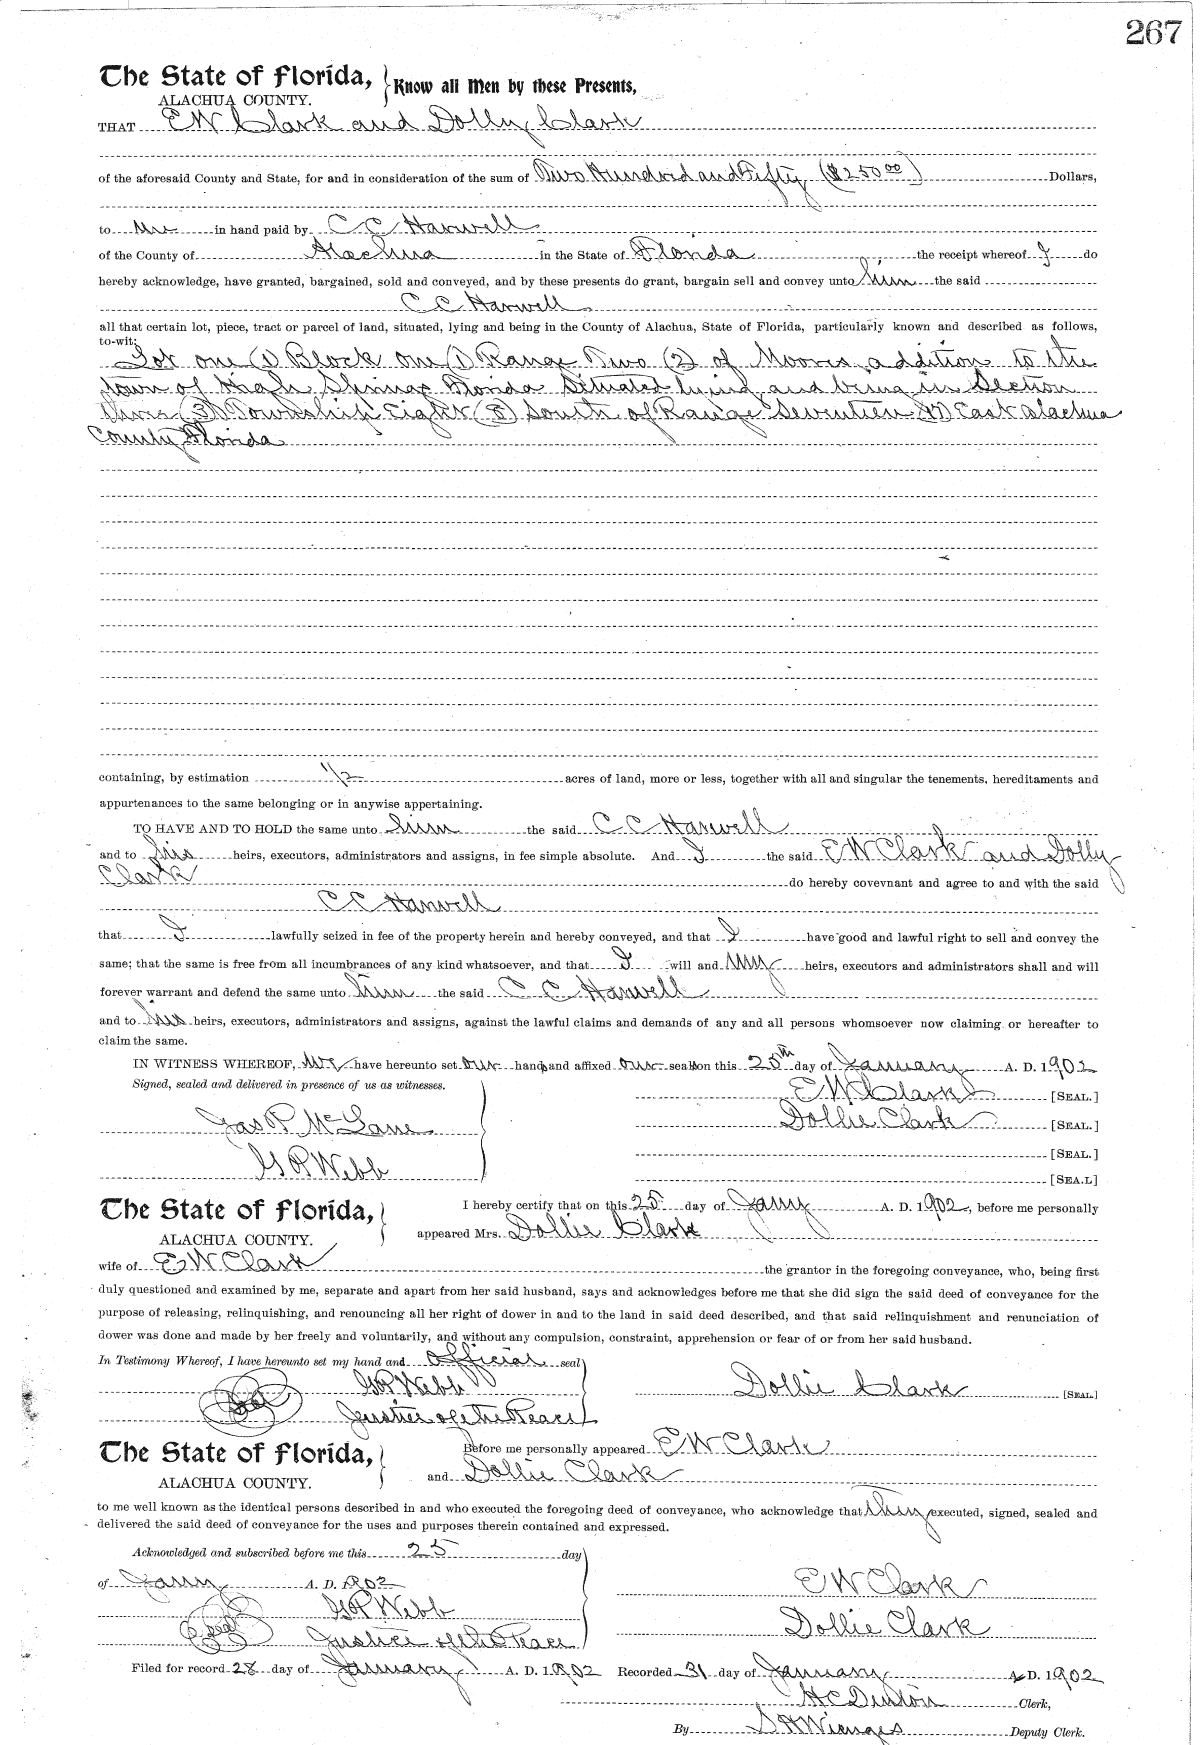 267
The State of Florida, } Know all Men by these Presents,
ALACHUA COUNTY.
THAT E W Clark and Dolly Clark
of the aforesaid County and State, for and in consideration of the sum of Two Hundred and Fifty ($250 00) Dollars,
to me in hand paid by C C Harwell
of the County of Alachua in the State of Florida the receipt whereof I do
hereby acknowledge, have granted, bargained, sold and conveyed, and by these presents do grant, bargain sell and convey unto him the said
C C Harwell
all that certain lot, piece, tract or parcel of land, situated, lying and being in the County of Alachua, State of Florida, particularly known and described as follows,
to-wit:
Lot one (1) Block one (1) Range Two (2) of Moores addition to the
town of High Springs Florida Situated lying and being in Section
three (3) Township Eight (8) South of Range Seventeen (17) East Alachua
County Florida
containing, by estimation 1/2 acres of land, more or less, together with all and singular the tenements, hereditaments and
appurtenances to the same belonging or in anywise appertaining.
TO HAVE AND TO HOLD the same unto him the said C C Harwell
and to his heirs, executors, administrators and assigns, in fee simple absolute. And I the said E W Clark and Dolly
Clark do hereby covevnant and agree to and with the said
C C Harwell
that I lawfully seized in fee of the property herein and hereby conveyed, and that I have good and lawful right to sell and convey the
same; that the same is free from all incumbrances of any kind whatsoever, and that I will and my heirs, executors and administrators shall and will
forever warrant and defend the same unto him the said C C Harwell
and to his heirs, executors, administrators and assigns, against the lawful claims and demands of any and all persons whomsoever now claiming or hereafter to
claim the same.
IN WITNESS WHEREOF, we have hereunto set our hands and affixed our seals on this 25th day of January A. D. 1902
Signed, sealed and delivered in presence of us as witnesses.
E W Clark [SEAL.]
Jas P McLane
Dollie Clark [SEAL.]
G P Webb
[SEAL.]
[SEA.L]
The State of Florida, } I hereby certify that on this 25 day of Jany A. D. 1902, before me personally
ALACHUA COUNTY. appeared Mrs. Dollie Clark
wife of E W Clark the grantor in the foregoing conveyance, who, being first
duly questioned and examined by me, separate and apart from her said husband, says and acknowledges before me that she did sign the said deed of conveyance for the
purpose of releasing, relinquishing, and renouncing all her right of dower in and to the land in said deed described, and that said relinquishment and renunciation of
dower was done and made by her freely and voluntarily, and without any compulsion, constraint, apprehension or fear of or from her said husband.
In Testimony Whereof, I have hereunto set my hand and official seal
G P Webb Dollie Clark [SEAL]
Seal Justice of the Peace
The State of Florida, } Before me personally appeared E W Clark
ALACHUA COUNTY. and Dollie Clark
to me well known as the identical persons described in and who executed the foregoing deed of conveyance, who acknowledge that they executed, signed, sealed and
delivered the said deed of conveyance for the uses and purposes therein contained and expressed.
Acknowledged and subscribed before me this 25 day
of Jany A. D. 1902 E W Clark
G P Webb
Seal Justice of the Peace Dollie Clark
Filed for record 28 day of January A. D. 1902 Recorded 31 day of January A. D. 1902
H C Denton Clerk,
By S H Wienges Deputy Clerk.